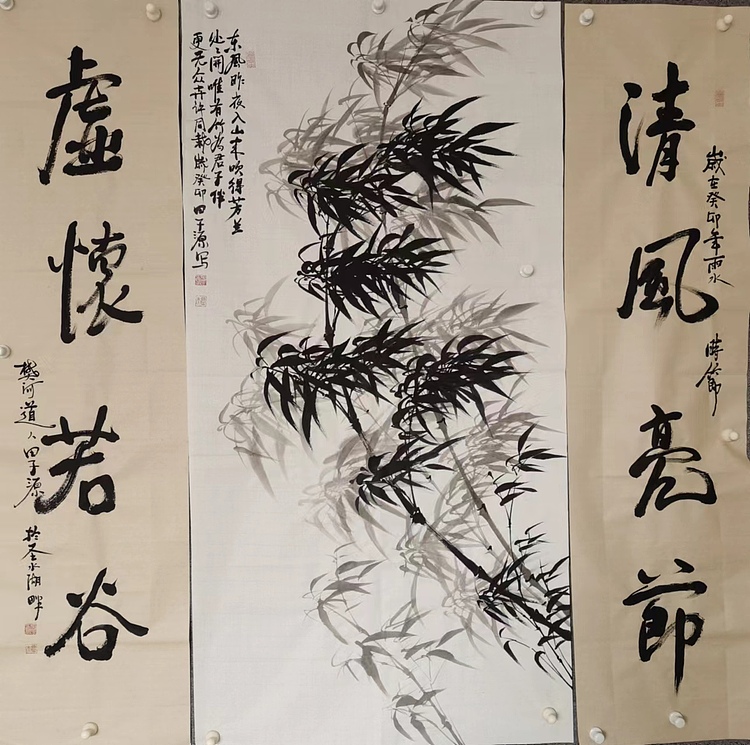 清風亮節
歲在癸卯年雨水
時節
东風昨夜入山来吹得芳兰
处处開唯有竹為君子伴
更无众卉许同栽歲癸卯田子源写
虛懷若谷
樊河道人田子源
於圣水湖畔